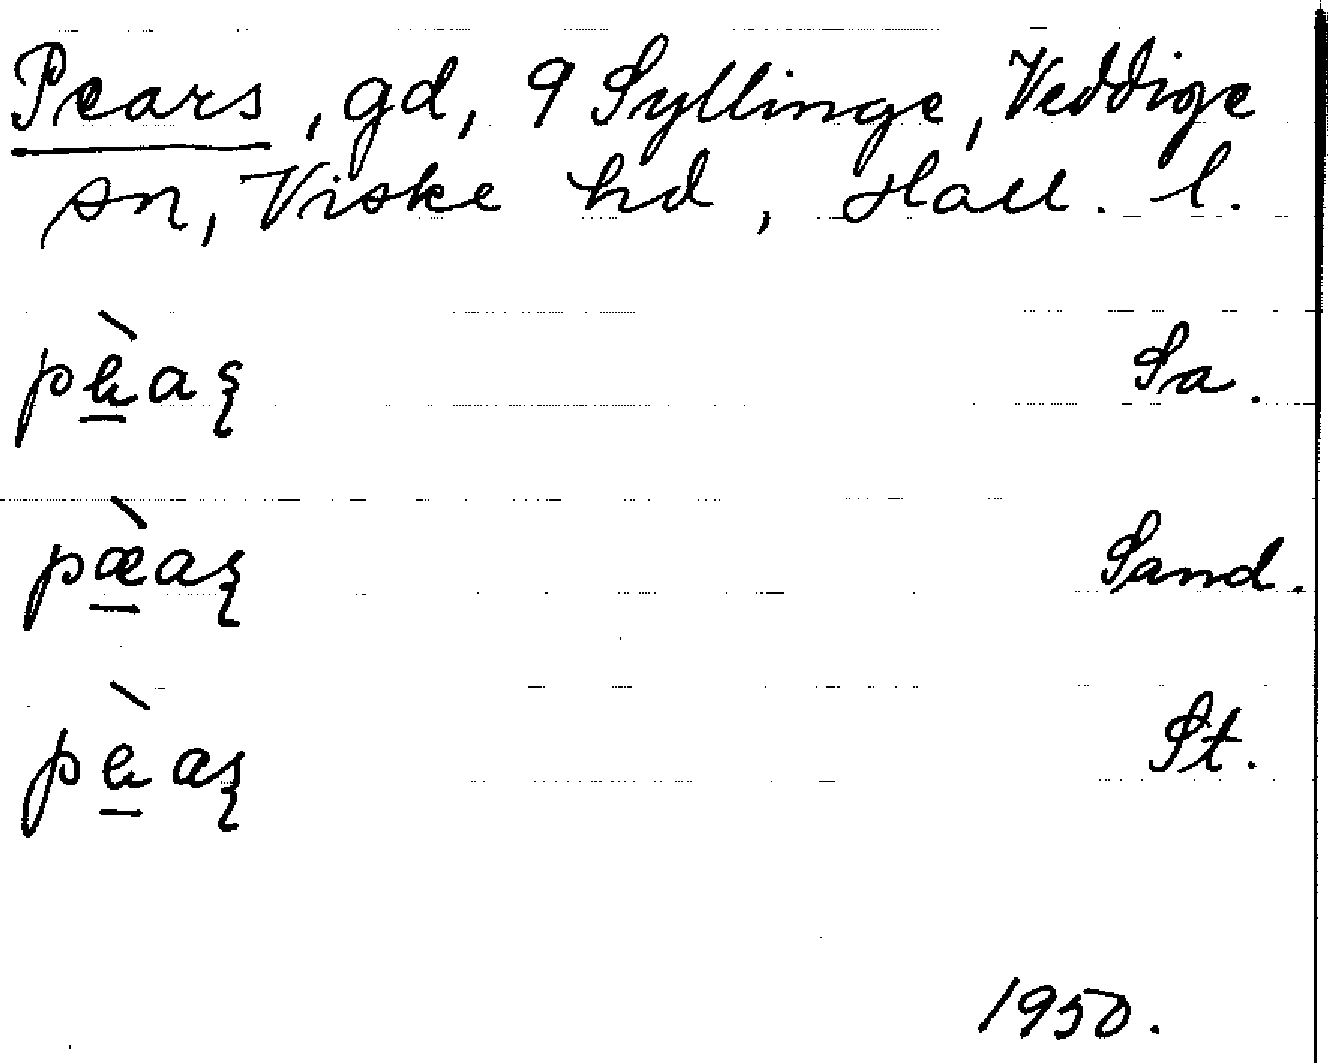 Pears, gd, 9 Syllinge, Veddige
sn, Viske hd, Hall. l.
Sa.
pæ̀aʂ Sand.
St.
1950.